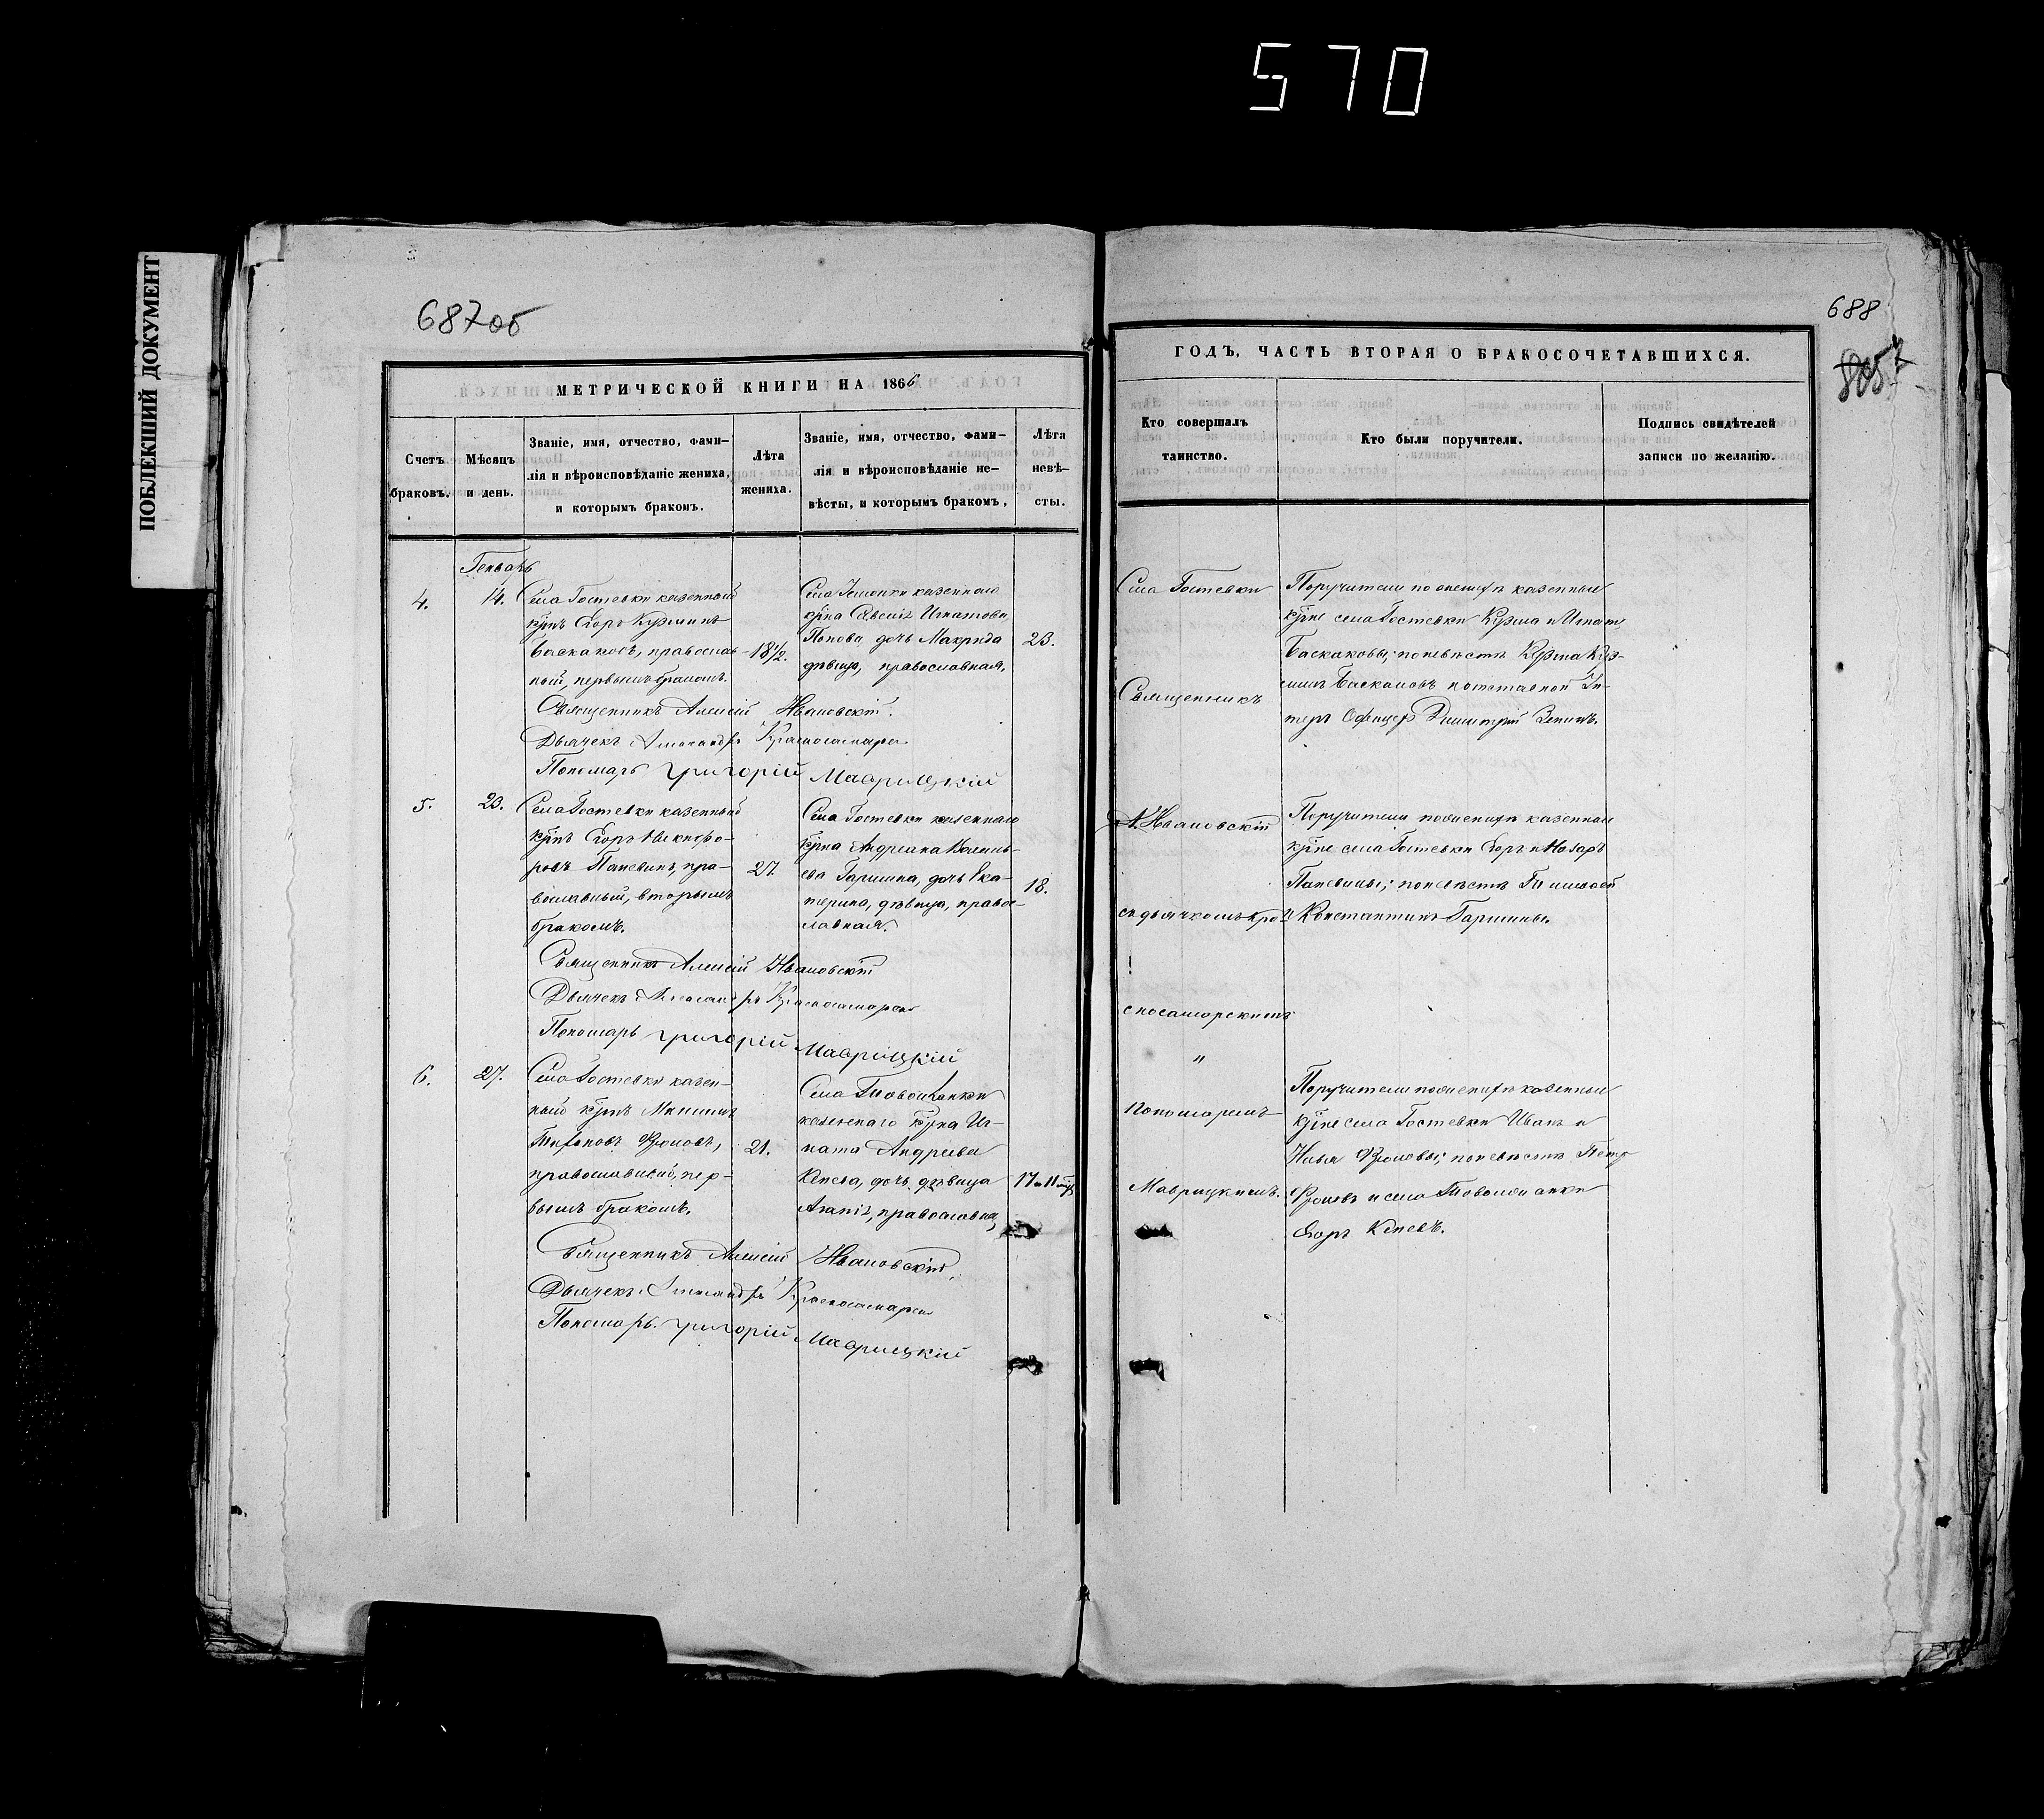 570
ПОБЛЕКШИЙ ДОКУМЕНТ
687об
МЕТРИЧЕСКОЙ КНИГИ НА 1866
Счетъ браковъ.
Мѣсяцъ и день.
Званіе, имя, отчество, фами-
лія и вѣроисповѣданіе жениха,
и которымъ бракомъ.
Лѣта
жениха.
Званіе, имя, отчество, фами-
лія и вѣроисповѣданіе не-
вѣсты, и которымъ бракомъ,
Лѣта
невѣ-
сты.
Генварь
4.
14.
Села Гостевки казенный
кр̃нъ Егоръ Кузминъ
Баскаковъ, православ-
ный, первымъ бракомъ.
18½.
Села казеннаго
кр̃на Савелія Игнатова
Попова дочь Макрида
дѣвица, православная,
23.
Священникъ Алексій Ивановскій.
Дьячекъ Александръ
Пономарь Григорій Маврицкій
5.
23.
Села Гостевки казенный
кр̃нъ Егоръ Никифо-
ровъ пра-
вославный, вторымъ
бракомъ.
27.
Села Гостевки казеннаго
кр̃на Андреана
ева Гаршина, дочь Ека-
терина, дѣвица, право-
славная.
18.
Священникъ Алексій Ивановскій
Дьячекъ Александръ
Пономарь Григорій Маврицкій
6.
27.
Села Гостевки казен-
ный кр̃нъ
Фроловъ,
православный, пер-
вымъ бракомъ.
21.
Села
казеннаго кр̃на Иг-
ната Андреева
Кепева, дочь дѣвица
Агапія, православная,
17 и 11
Священникъ Алексій Ивановскій,
Дьячекъ Александръ
Пономарь Григорій Маврицкій
688
ГОДЪ, ЧАСТЬ ВТОРАЯ О БРАКОСОЧЕТАВШИХСЯ.
Кто совершалъ
таинство.
Кто были поручители.
Подпись свидѣтелей
записи по желанію.
Села Гостевки
Священникъ
А. Ивановскій
съ дьячкомъ Кра-
сносамарскимъ
"
пономаремъ
Маврицкимъ.
Поручители по женихѣ казенные
кр̃не села Гостевки Кузма и Игнатъ
Баскаковы; по невѣстѣ Кузма Куз-
минъ Баскаковъ и отставной Ун-
теръ Офицеръ Димитрій
Поручители по женихѣ казенные
кр̃не села Гостевки Егоръ и Назаръ
по невѣстѣ Тимофей
и Константинъ Гаршины.
Поручители по женихѣ казенные
кр̃не села Гостевки Иванъ и
Илья Фроловы; по невѣстѣ Петръ
Фроловъ и села
Егоръ Кепевъ.